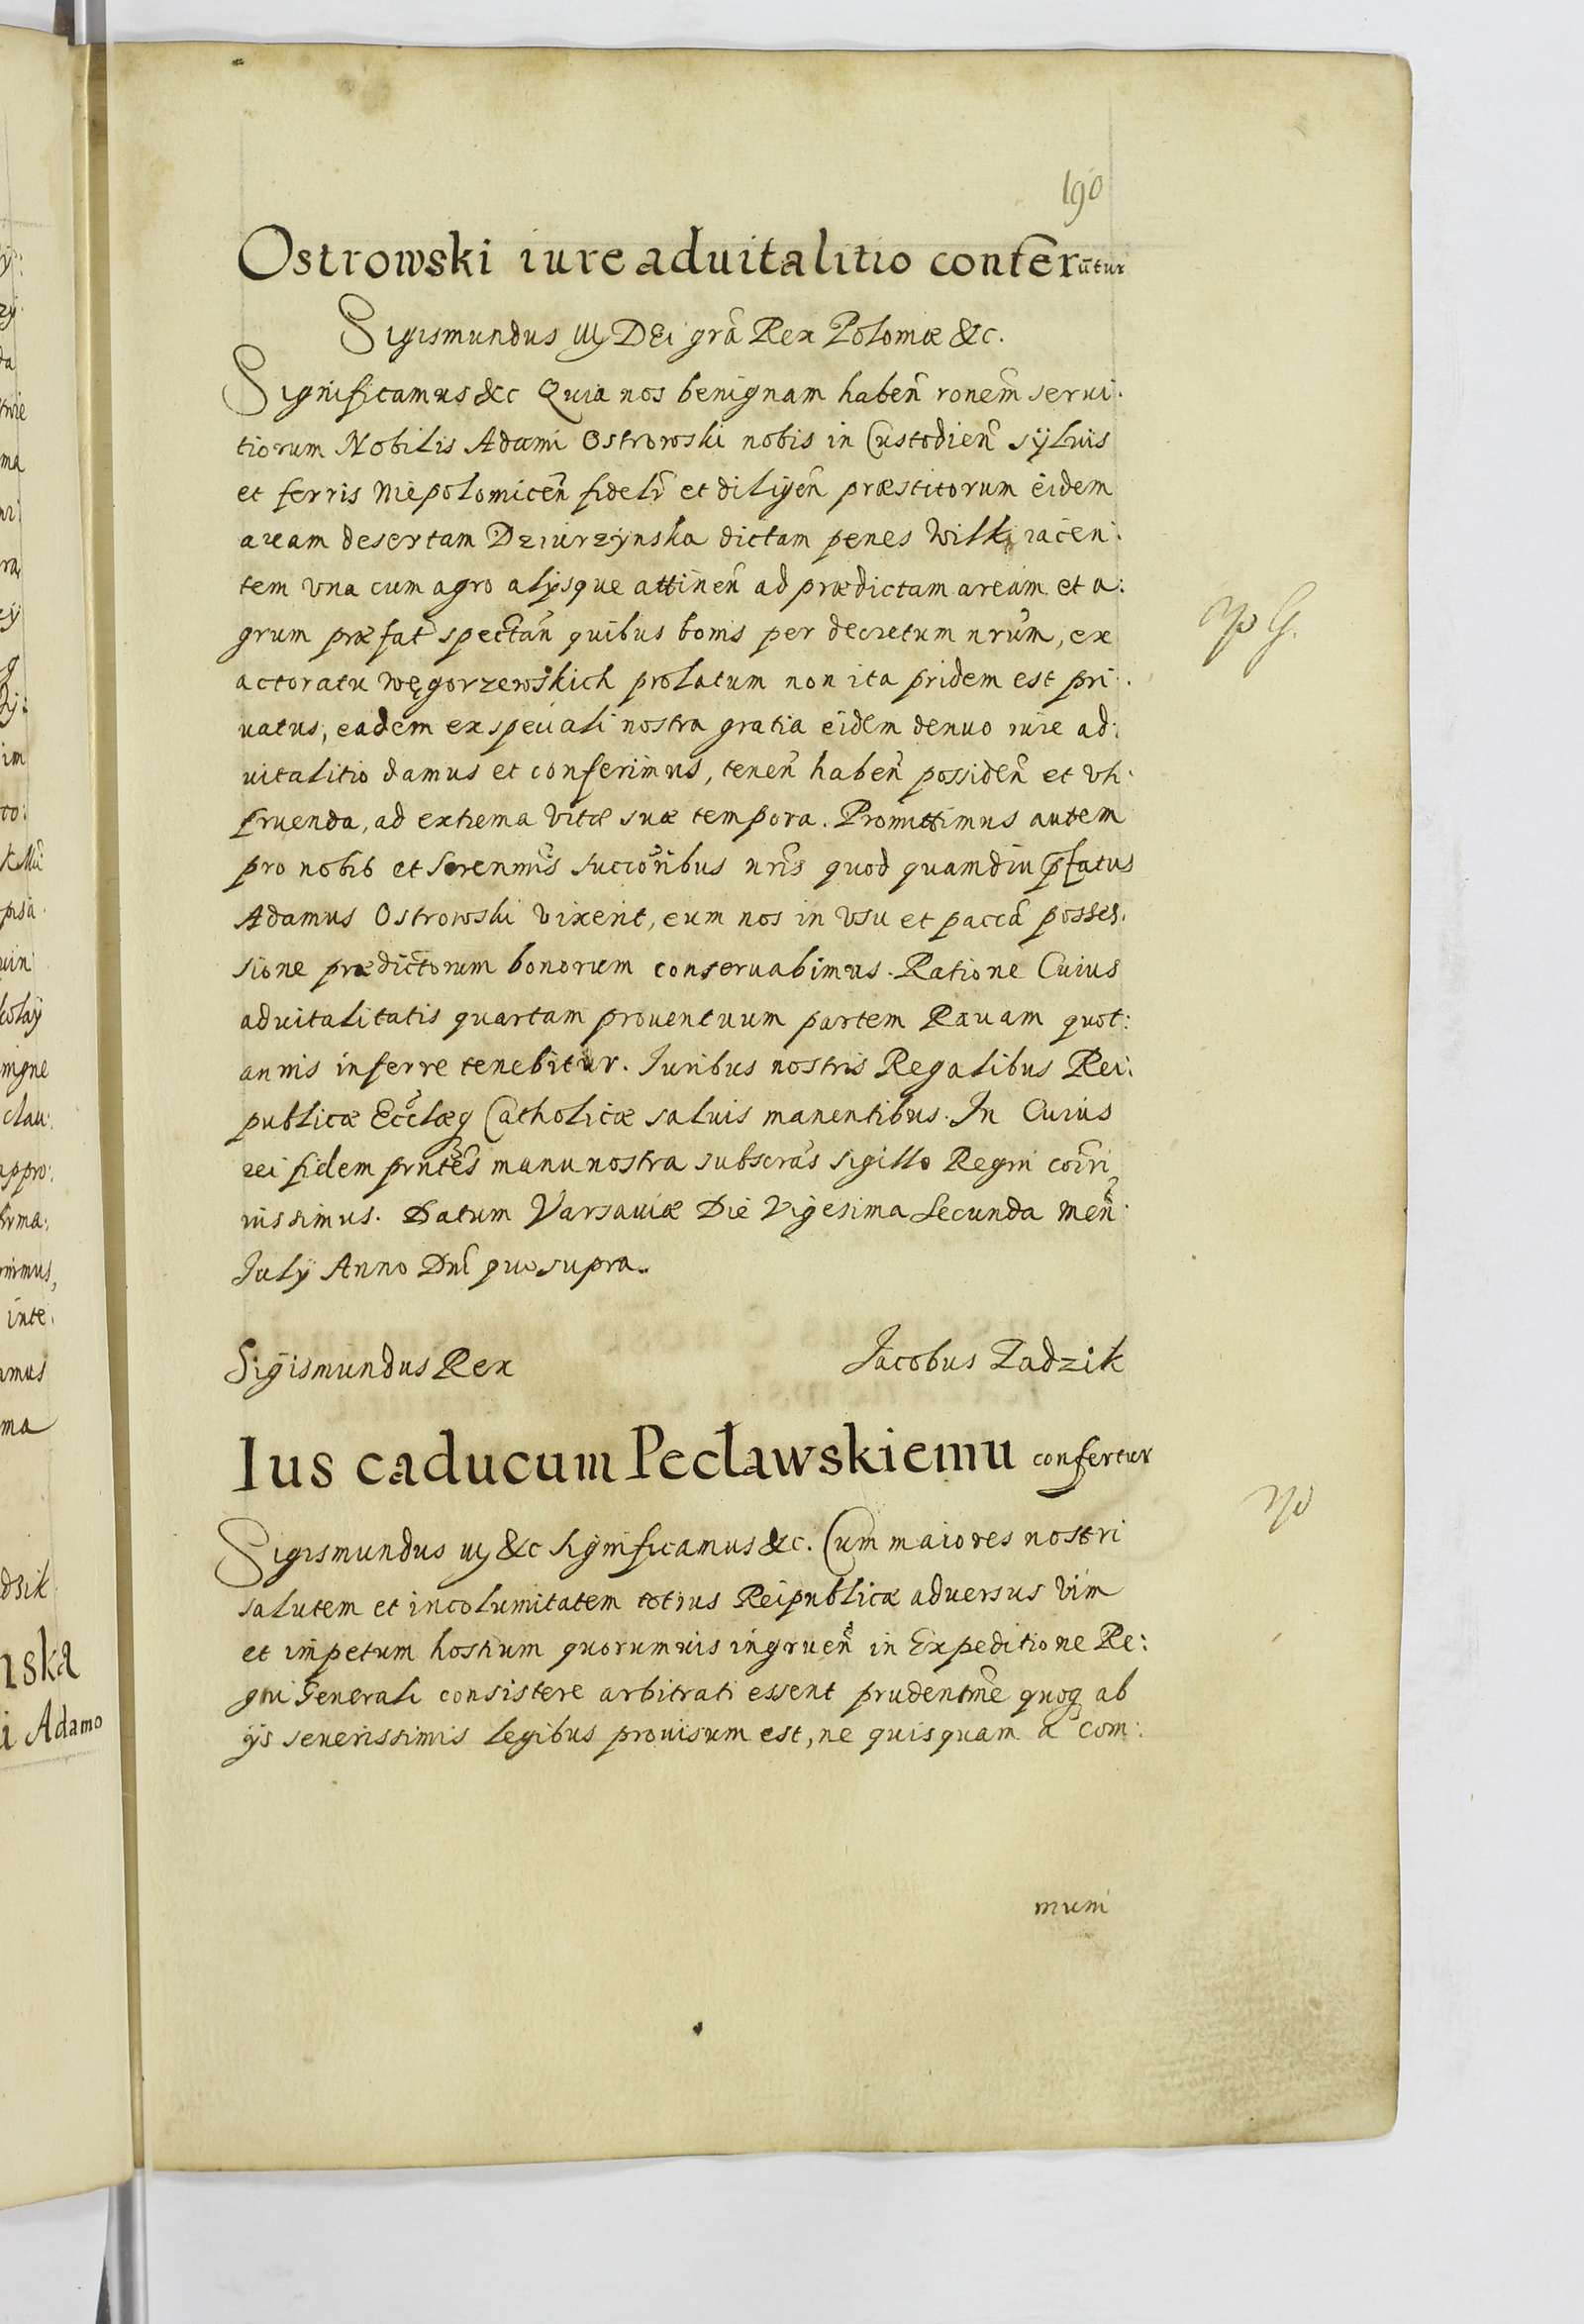 190
Ostrowski iure aduitalitio conferūtur
Sigismundus iij DEi grã Rex Poloniæ &c.
Significamus &c Quia nos benignam habeñ ronem̃ serui:
tiorum Nobilis Adami Ostrowski nobis in Custodieñ syluis
et ferris Niepolomiceñ fidelr̃ et diligeñ præstitorum eidem
aream desertam Dziurzynska dictam penes Wilki iacen:
tem vna cum agro alijsque attineñ ad prædictam aream et a:
grum præfat̃ spectañ quibus bonis per decretum nrũm, ex
actoratu węgorzewskich prolatum non ita pridem est pri:
uatus, eadem ex speciali nostra gratia eidem denuo iure ad:
uitalitio damus et conferimus, teneñ habeñ possideñ et vti
fruenda, ad extrema vitæ suæ tempora. Promittimus autem
pro nobis et Serenmis̃ succorĩbus nris̃ quod quamdiu p̃fatus
Adamus Ostrowski vixerit, eum nos in vsu et paccã posses.
sione prædictorum bonorum conseruabimus. Ratione Cuius
aduitalitatis quartam prouentuum partem Rauam quot:
annis inferre tenebitur. Iuribus nostris Regalibus Rei:
publicæ Eccl̃æq Catholicæ saluis manentibus. In Cuius
rei fidem prntẽs manu nostra subscrãs sigillo Regni coĩri
iussimus. Datum Varsauiæ Die Vigesima Secunda Meñ:
July Anno Dnĩ quo supra.
Sigismundus Rex
Jacobus Zadzik
Ius caducum Pecławskiemu confertur
Sigismundus iij &c Significamus &c. Cum maiores nostri
salutem et incolumitatem totius Reipublicæ aduersus vim
et impetum hostium quorumuis ingrueñ in Expeditione Re:
gni Generali consistere arbitrati essent prudentmẽ quoq ab
ijs seuerissimis legibus prouisum est, ne quisquam a com:
muni